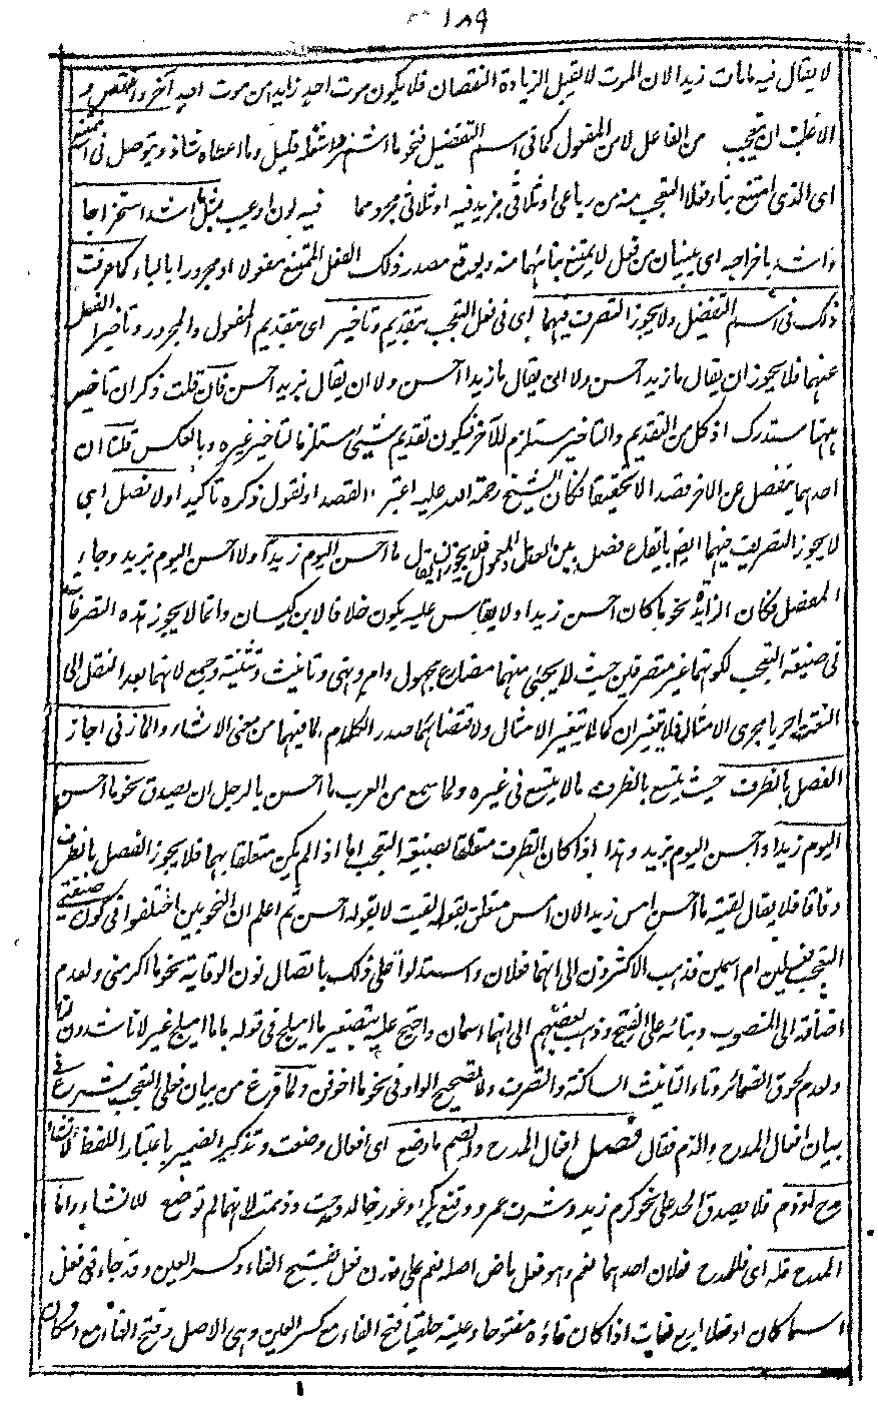 ١٨٩
لا يقال فيه ما مات زيدا لان الموت لا يقبل الزيادة النقصان فلا يكون موت احدٍ زايد من موت احدٍ آخر و
الاغلب ان يتعجب من الفاعل لا من المفعول كما فى اسم التفضيل فنحو ما اشهر قليل وما اعطاه شاذ ويتوصل فى الممتنع
اى الذى امتنع بناء فعلا التعجب منه من رباعى او ثلاثى مزيد فيه او ثلاثى مجرد مما فيه لون او عيب بمثل ما اشد استخراجا
واشدد باخراجه اى يبنيان من فعل لا يمتنع بنائهما منه ويوقع مصدر ذلك الفعل الممتنع مفعولا او مجرورا بالباء كما عرفت
ذلك فى اسم التفضيل ولا يجوز التصرف فيهما اى فى فعل التعجب بتقديم وتاخير اى بتقديم المفعول والمجرور وتاخير الفعل
عنهما فلا يجوز ان يقال ما زيد احسن ولا ان يقال ما زيدا احسن ولا ان يقال بزيد احسن فان قلت ذكر ان تاخير
ههنا مستدرك اذ كل من التقديم والتاخير مستلزم للآخر فيكون تقديم شيئ مستلزما لتاخير غيره وبالعكس قلنا ان
احدهما ينفصل عن الاخر قصدا لا تحقيقا فكان الشيخ رحمة الله عليه اعتبر القصد او نقول ذكره تاكيد اولا نصل اى
لا يجوز التصريف فيهما ايضا بايقاع فصل بين العامل والمعمول فلا يجوز ان يقال ما احسن اليوم زيدا ولا احسن اليوم بزيد وجاء
الفصل فكان الزائدة نحو ما كان احسن زيدا ولا يقاس عليه يكون خلافا لابن كيسان وانما لا يجوز هذه التصرفات
فى صيغة التعجب لكونهما غير متصرفين حيث لا يجئ منهما مضارع ومجهول وامر ونهى وتانيث وتثنية وجمع لانهما بعد النقل الى
التعجب اجريا مجرى الامثال فلا يتغيران كما لا يتغير الامثال ولاقتضائهما صدر الكلام لما فيهما من معنى الانشاء والمازنى اجاز
الفصل بالظرف حيث يتسع بالظرف ما لا يتسع فى غيره ولما سمع من العرب ما احسن بالرجل ان يصدق نحو ما احسن
اليوم زيدا واحسن اليوم بزيد وهذا اذا كان الظرف متعلقا بصيغة التعجب اما اذا لم يكن متعلقا بهما فلا يجوز الفصل بالظرف
وفاقا فلا يقال لقيته ما احسن امس زيدا لان امس متعلق بقوله لقيت لا بقوله احسن ثم اعلم ان النحويين اختلفوا فى كون صيغتى
التعجب فعلين ام اسمين فذهب الاكثرون الى انهما فعلان واستدلوا على ذلك باتصال نون الوقاية نحو ما اكرمنى ولعدم
اضافته الى المنصوب وبنائه على الفتح وذهب بعضهم الى انهما اسمان واحتج عليه بتصغير ما اميلح فى قوله يا ما اميلح غزلانا شدن لنا
ولعدم لحوق الضمائر وتاء التانيث الساكنة والتصرف ولتصحيح الواو فى نحو ما اخوفن ولما فرغ من بيان فعلى التعجب شرع فى
بيان افعال المدح والذم فقال فصل افعال المدح والذم ما وضع اى افعال وضعت وتذكير الضمير باعتبار اللفظ لانشاء
مدح او ذم فلا يصدق الحد على نحو كرم زيد وشرف عمرو وقبح بكر وعور خالد ومدحت وذممت لانها لم توضع للانشاء واما
المدح فله اى فللمدح فعلان احدهما نعم وهو فعل ماض اصله نعم على وزن فعل بفتح الفاء وكسر العين وقد جاء فى فعل
اسما كان او فعلا اربع لغات اذا كان فاؤه مفتوحا وعينه حلقيا فتح الفاء مع كسر العين وهى الاصل وفتح الفاء مع اسكان